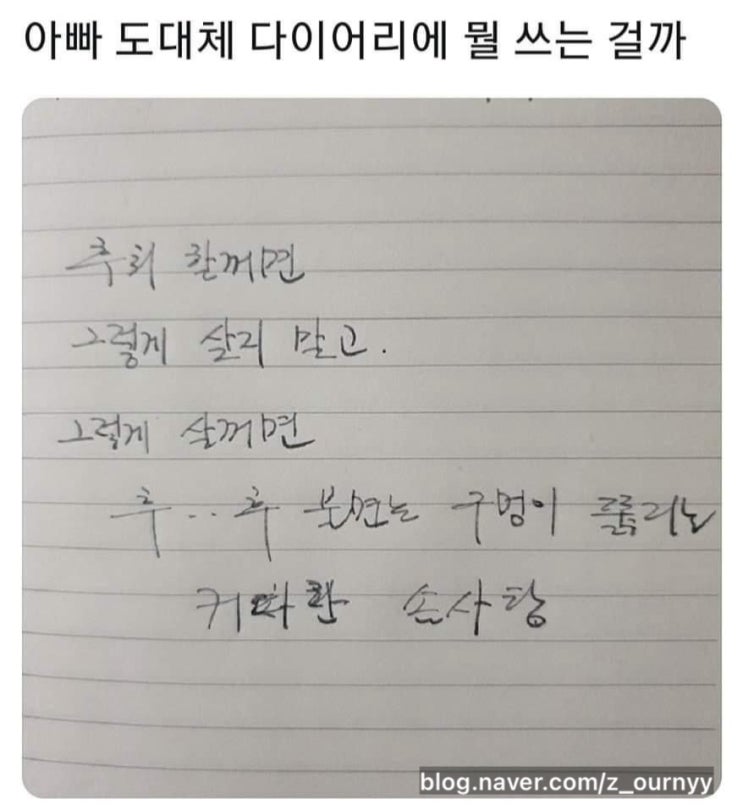 아빠 도대체 다이어리에 뭘 쓰는 걸까
후회 할꺼면
그렇게 살지 말고.
그렇게 살꺼면
후..후 불면은 구멍이 뚫리는
커다란 솜사탕
blog.naver.com/z_ournyy